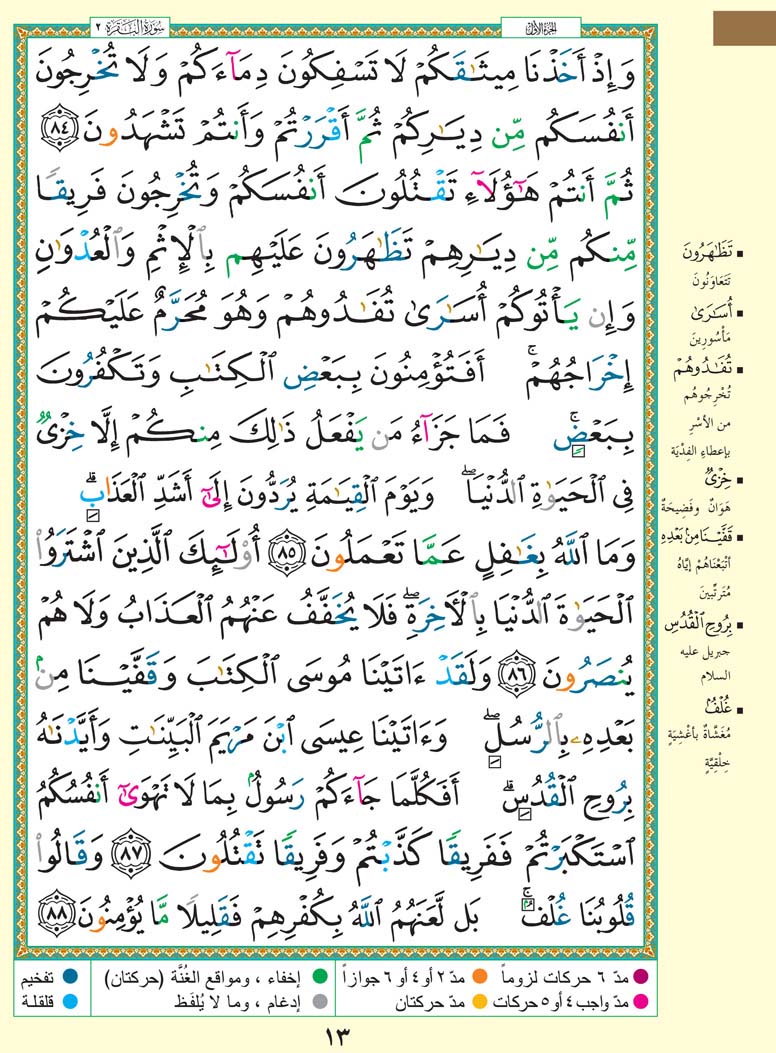 الجزء الأول
سورة البقرة ٢
وَإِذْ أَخَذْنَا مِيثَٰقَكُمْ لَا تَسْفِكُونَ دِمَآءَكُمْ وَلَا تُخْرِجُونَ
أَنفُسَكُم مِّن دِيَٰرِكُمْ ثُمَّ أَقْرَرْتُمْ وَأَنتُمْ تَشْهَدُونَ ٨٤
ثُمَّ أَنتُمْ هَٰٓؤُلَآءِ تَقْتُلُونَ أَنفُسَكُمْ وَتُخْرِجُونَ فَرِيقًا
مِّنكُم مِّن دِيَٰرِهِمْ تَظَٰهَرُونَ عَلَيْهِم بِٱلْإِثْمِ وَٱلْعُدْوَٰنِ
وَإِن يَأْتُوكُمْ أُسَٰرَىٰ تُفَٰدُوهُمْ وَهُوَ مُحَرَّمٌ عَلَيْكُمْ
إِخْرَاجُهُمْ ۚ أَفَتُؤْمِنُونَ بِبَعْضِ ٱلْكِتَٰبِ وَتَكْفُرُونَ
بِبَعْضٍ ۚ فَمَا جَزَآءُ مَن يَفْعَلُ ذَٰلِكَ مِنكُمْ إِلَّا خِزْىٌ
فِى ٱلْحَيَوٰةِ ٱلدُّنْيَا ۖ وَيَوْمَ ٱلْقِيَٰمَةِ يُرَدُّونَ إِلَىٰٓ أَشَدِّ ٱلْعَذَابِ ۗ
وَمَا ٱللَّهُ بِغَٰفِلٍ عَمَّا تَعْمَلُونَ ٨٥ أُو۟لَٰٓئِكَ ٱلَّذِينَ ٱشْتَرَوُا۟
ٱلْحَيَوٰةَ ٱلدُّنْيَا بِٱلْءَاخِرَةِ ۖ فَلَا يُخَفَّفُ عَنْهُمُ ٱلْعَذَابُ وَلَا هُمْ
يُنصَرُونَ ٨٦ وَلَقَدْ ءَاتَيْنَا مُوسَى ٱلْكِتَٰبَ وَقَفَّيْنَا مِنۢ
بَعْدِهِۦ بِٱلرُّسُلِ ۖ وَءَاتَيْنَا عِيسَى ٱبْنَ مَرْيَمَ ٱلْبَيِّنَٰتِ وَأَيَّدْنَٰهُ
بِرُوحِ ٱلْقُدُسِ ۗ أَفَكُلَّمَا جَآءَكُمْ رَسُولٌۢ بِمَا لَا تَهْوَىٰٓ أَنفُسُكُمُ
ٱسْتَكْبَرْتُمْ فَفَرِيقًا كَذَّبْتُمْ وَفَرِيقًا تَقْتُلُونَ ٨٧ وَقَالُوا۟
قُلُوبُنَا غُلْفٌۢ ۚ بَل لَّعَنَهُمُ ٱللَّهُ بِكُفْرِهِمْ فَقَلِيلًا مَّا يُؤْمِنُونَ ٨٨
تَظَٰهَرُونَ
تَتَعَاوَنُونَ
أُسَٰرَىٰ
مَأْسُورِينَ
تُفَٰدُوهُمْ
تُخْرِجُوهُم
من الأَسْرِ
بإعطاءِ الفِدْيَة
خِزْىٌ
هَوَانٌ وفَضِيحَةٌ
قَفَّيْنَا مِنۢ بَعْدِهِ
أتْبَعْنَاهُمْ إيَّاهُ
مُتَرتِّبينَ
بِرُوحِ ٱلْقُدُسِ
جبريل عليه
السلام
غُلْفٌ
مُغَشَّاةٌ بأغْشِيَةٍ
خِلْقِيَّةٍ
مدّ ٦ حركات لزوماً مدّ ٢ أو ٤ أو ٦ جوازاً إخفاء ، ومواقع الغُنَّة (حركتان) تفخيم
مدّ واجب ٤ أو ٥ حركات مدّ حركتان إدغام ، وما لا يُلفَظ قلقلة
١٣